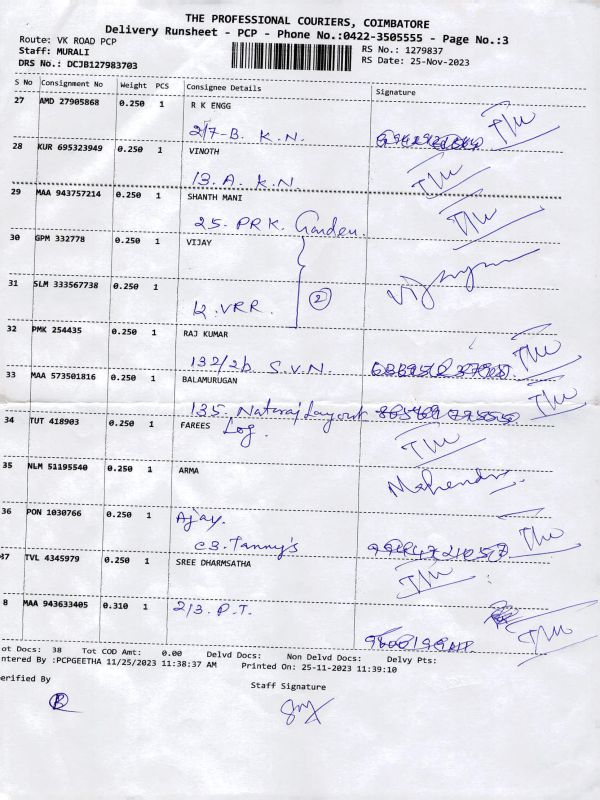 THE PROFESSIONAL COURIERS, COIMBATORE
Delivery Runsheet - PCP - Phone No.:0422-3505555 - Page No.:3
Route: VK ROAD PCP
Staff: MURALI RS No.: 1279837
DRS No.: DCJB127983703 RS Date: 25-Nov-2023
S No Consignment No Weight PCS Consignee Details Signature
27 AMD 27905868 0.250 1 R K ENGG
217-B. K.N.
28 KUR 695323949 0.250 1 VINOTH
13. A. K.N.
29 MAA 943757214 0.250 1 SHANTH MANI
25. PRK. Garden.
30 GPM 332778 0.250 1 VIJAY
2
31 SLM 333567738 0.250 1
12. VRR.
32 PMK 254435 0.250 1 RAJ KUMAR
132/2b S.V.N.
33 MAA 573501816 0.250 1 BALAMURUGAN
135. Nataraj Layout
34 TUT 418903 0.250 1 FAREES
Log.
35 NLM 51195540 0.250 1 ARMA Mahendra
36 PON 1030766 0.250 1 Ajay.
C3. Tanny's
37 TVL 4345979 0.250 1 SREE DHARMSATHA
8 MAA 943633405 0.310 1 2/3. P.T.
ot Docs: 38 Tot COD Amt: 0.00 Delvd Docs: Non Delvd Docs: Delvy Pts:
ntered By :PCPGEETHA 11/25/2023 11:38:37 AM Printed On: 25-11-2023 11:39:10
erified By Staff Signature